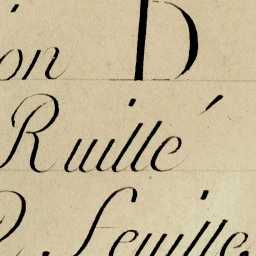 ion D
Ruillé
R. feuille